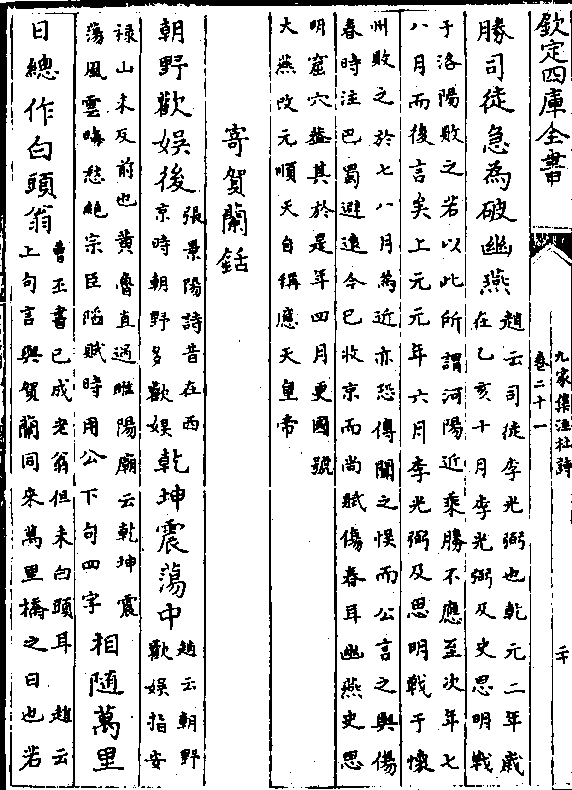 欽定四庫全書
九家集注杜詩
卷二十一
二十
勝司徒急為破幽燕
趙云司徒李光弼也乾元二年歲
在乙亥十月李光弼及史思明戰
于洛陽敗之若以此所謂河陽近乘勝不應至次年七
八月而後言矣上元元年六月李光弼及思明戰于懷
州敗之於七八月為近亦恐傳聞之悮而公言之與傷
春時注巴蜀避逺今已收京而尚賦傷春耳幽燕史思
明窟穴葢其於是年四月更國號
大燕改元順天自稱應天皇帝
寄賀蘭銛
朝野歡娯後
張景陽詩昔在西
京時朝野多歡娯
乾坤震蕩中
趙云朝野
歡娯指安
禄山未反前也黄魯直過睢陽廟云乾坤震
蕩風雲晦愁絶宗臣陷賊時用公下句四字
相隨萬里
日總作白頭翁
曹丕書已成老翁但未白頭耳 趙云
上句言與賀蘭同來萬里橋之日也若